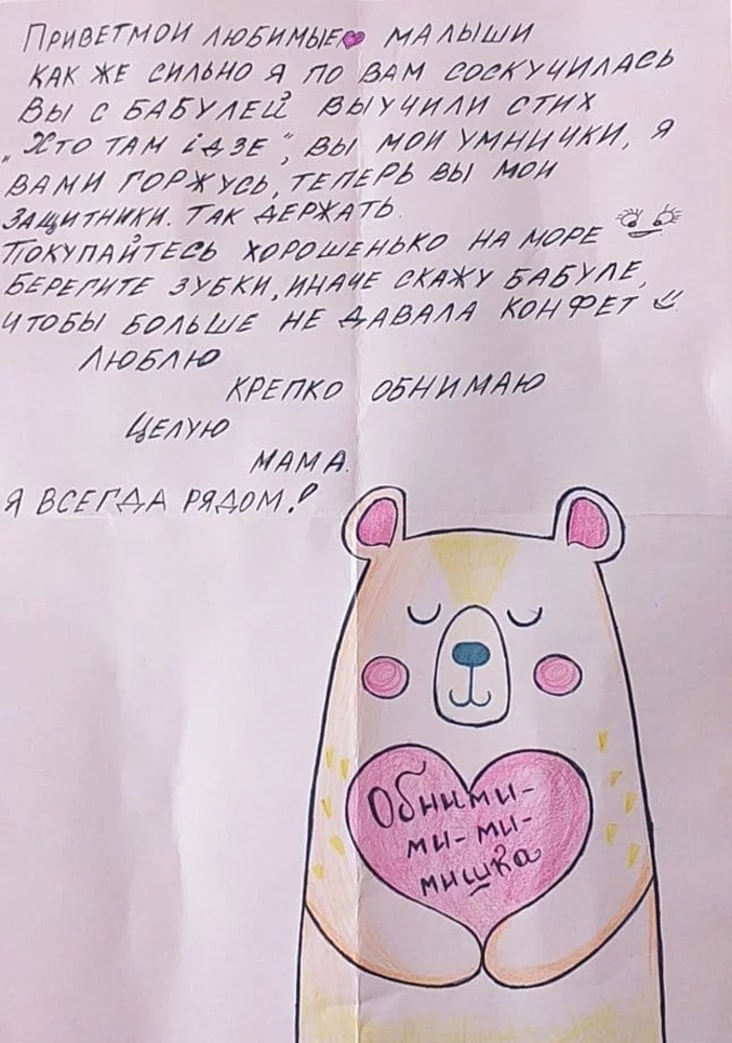 ПРИВЕТ МОИ ЛЮБИМЫЕ МАЛЫШИ
КАК ЖЕ СИЛЬНО Я ПО ВАМ СОСКУЧИЛАСЬ
ВЫ С БАБУЛЕЙ ВЫУЧИЛИ СТИХ
„ХТО ТАМ ІДЗЕ“, ВЫ МОИ УМНИЧКИ, Я
ВАМИ ГОРЖУСЬ, ТЕПЕРЬ ВЫ МОИ
ЗАЩИТНИКИ. ТАК ДЕРЖАТЬ.
ПОКУПАЙТЕСЬ ХОРОШЕНЬКО НА МОРЕ
БЕРЕГИТЕ ЗУБКИ, ИНАЧЕ СКАЖУ БАБУЛЕ,
ЧТОБЫ БОЛЬШЕ НЕ ДАВАЛА КОНФЕТ
ЛЮБЛЮ
КРЕПКО ОБНИМАЮ
ЦЕЛУЮ
МАМА.
Я ВСЕГДА РЯДОМ!
Обними-
ми-ми-
мишка